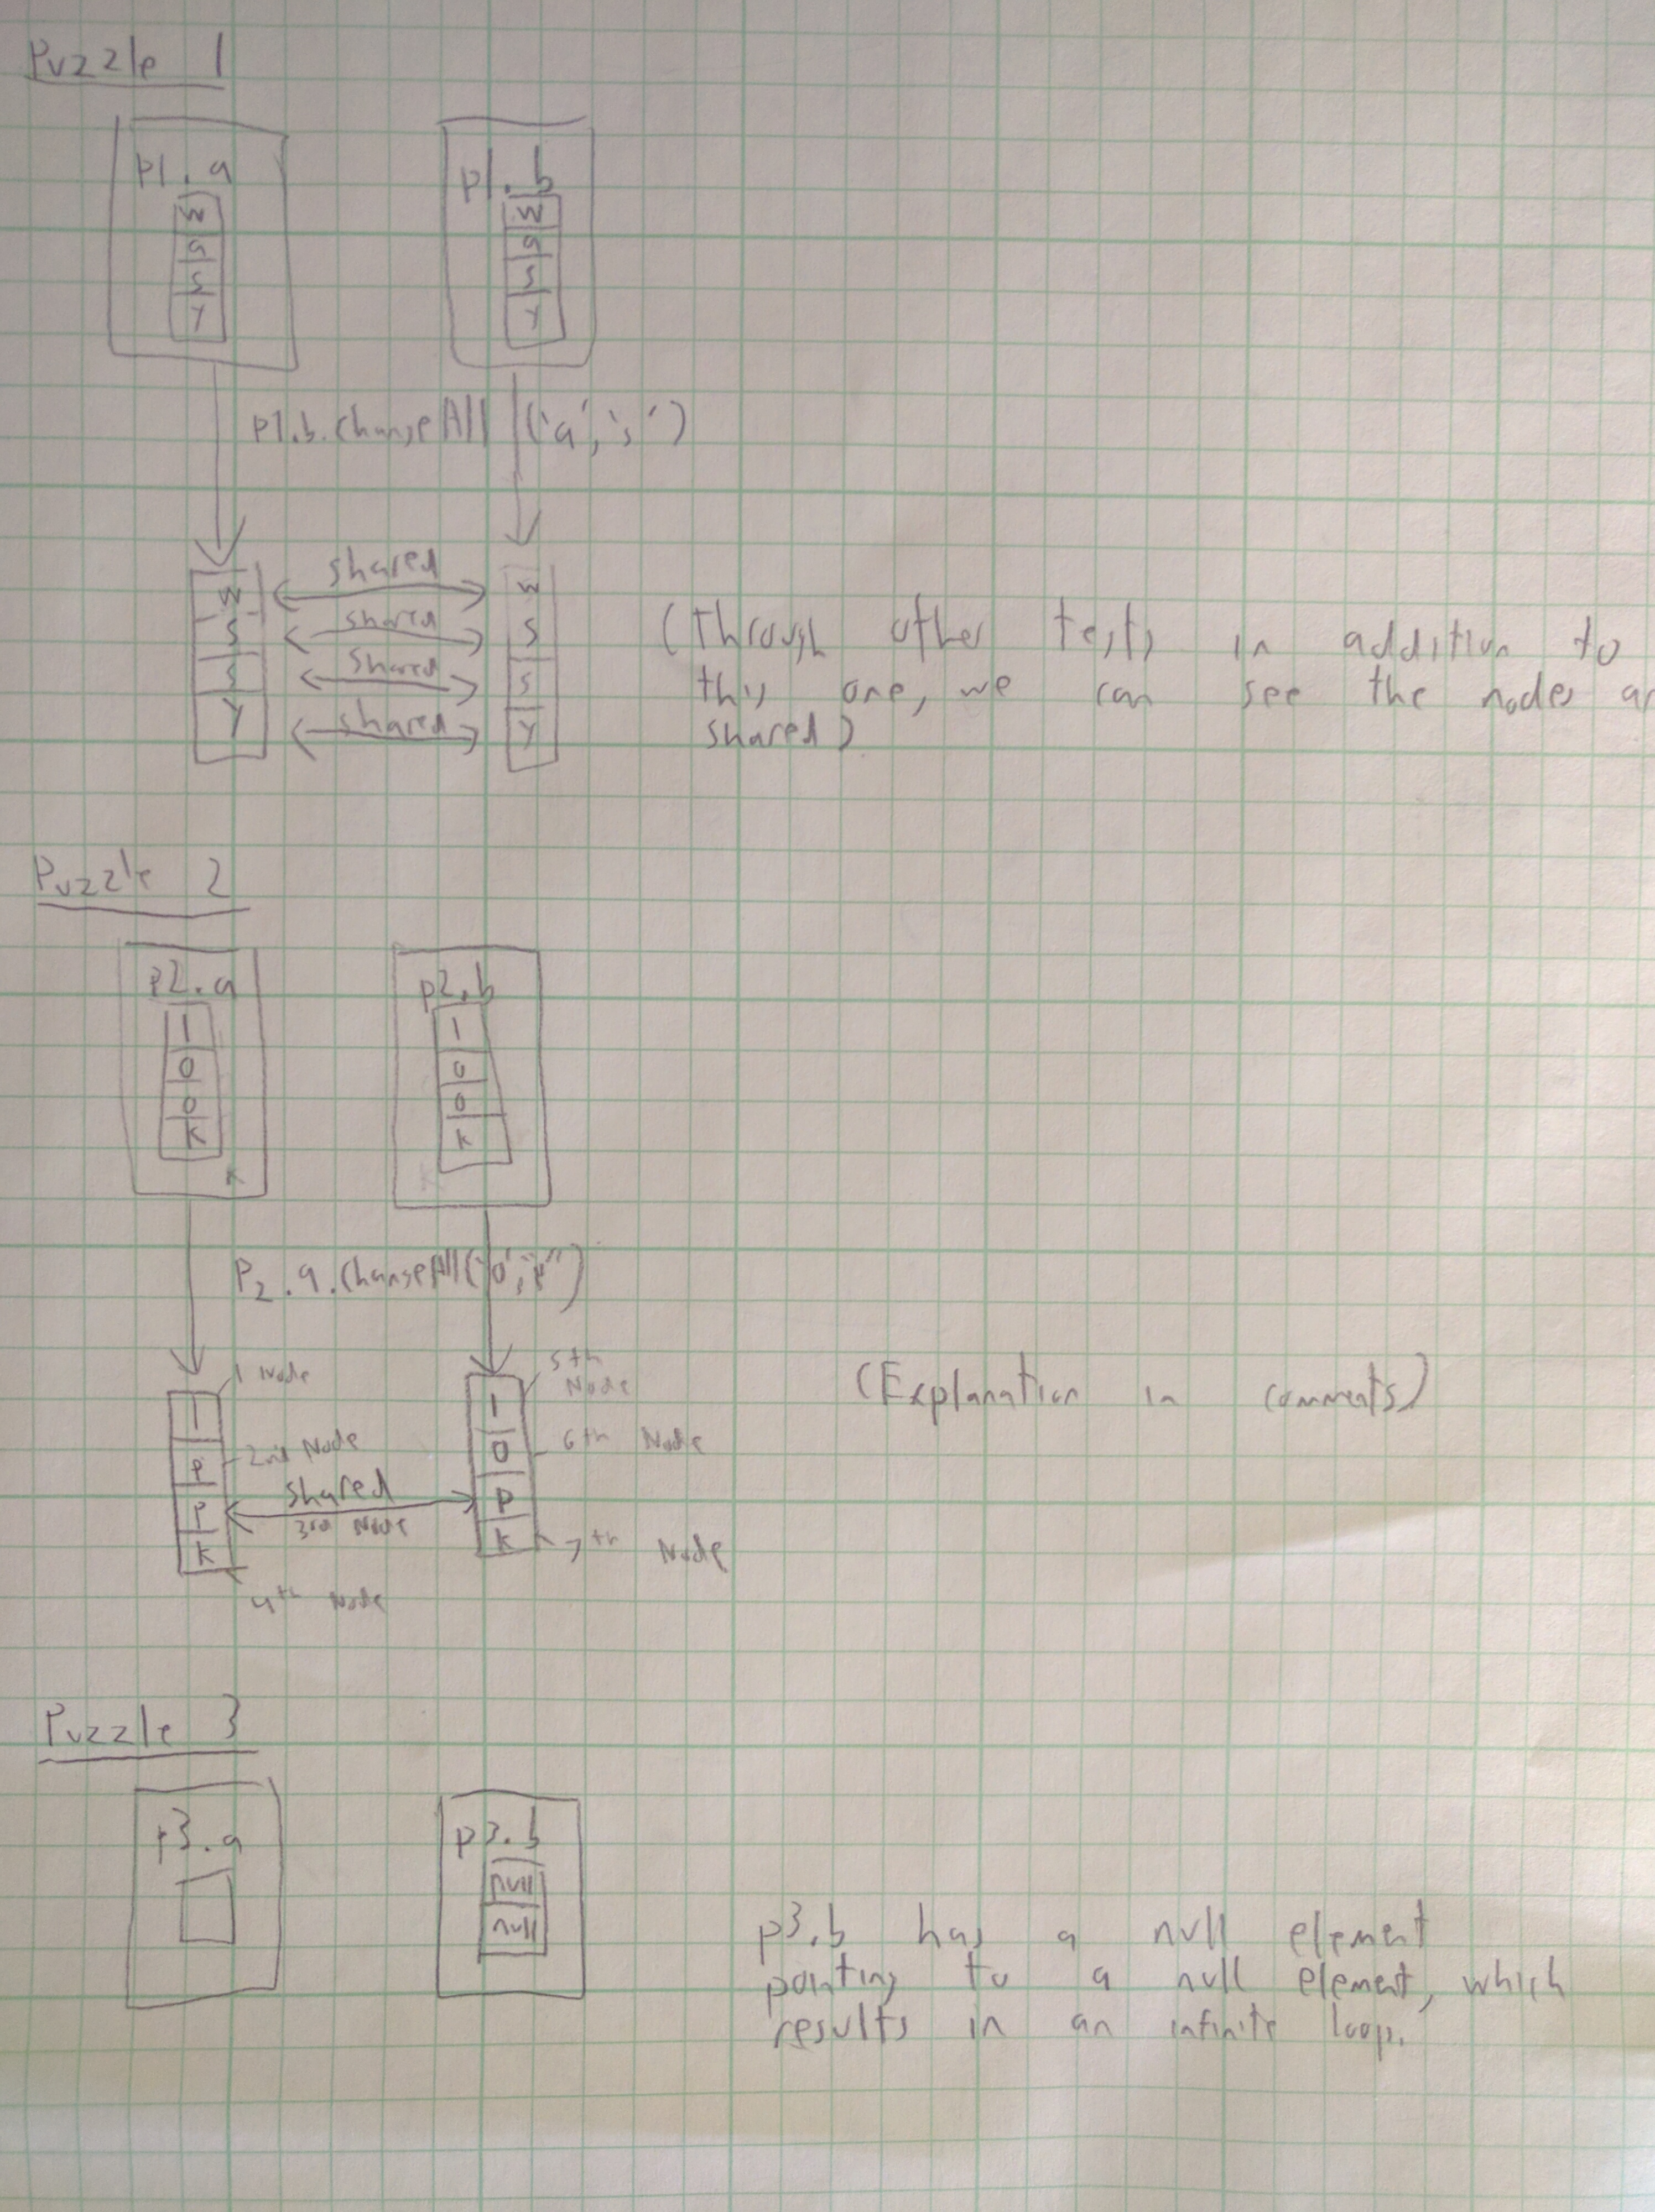 Puzzle 1
p1.a
p1.b
w
a
s
y
w
a
s
y
p1.b.changeAll('a','s')
w
s
s
y
shared
shared
shared
shared
w
s
s
y
(Through other tests in addition to
this one, we can see the nodes ar
shared)
Puzzle 2
p2.a
p2.b
l
o
o
k
l
o
o
k
k
P2.a.changeAll('o','p'')
1 Node
5th
Node
l
l
2nd Node
6th Node
p
o
shared
p
p
3rd Node
k
k
7th Node
4th Node
(Explanation in comments)
Puzzle 3
p3.a
p3.b
null
null
p3.b has a null element
pointing to a null element, which
results in an infinite loop.